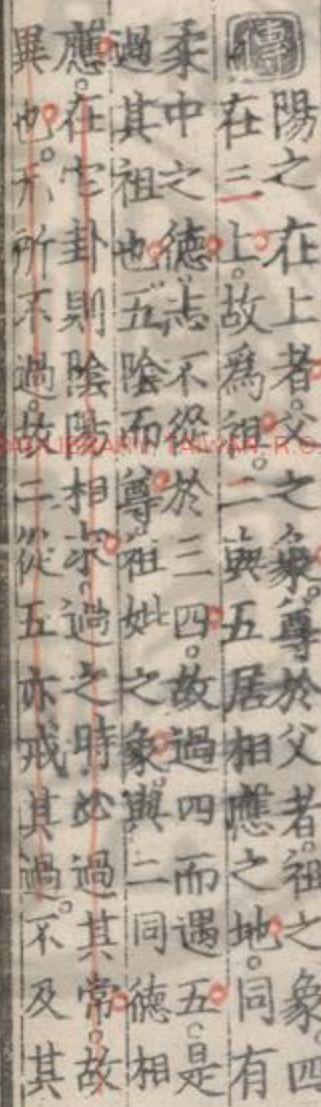 傳
陽之在上者。父之象。尊於父者。祖之象。四
在三上。故爲祖。二與五居相應之地。同有
柔中之德。志不從於三四。故過四而遇五。是
過其祖也。五陰而尊。祖妣之象。與二同德相
應。在它卦則陰陽相求。過之時必過其常。故
異也。无所不過。故二從五亦戒其過。不及其
NAL LIBRARY, TAIWAN, R.O.